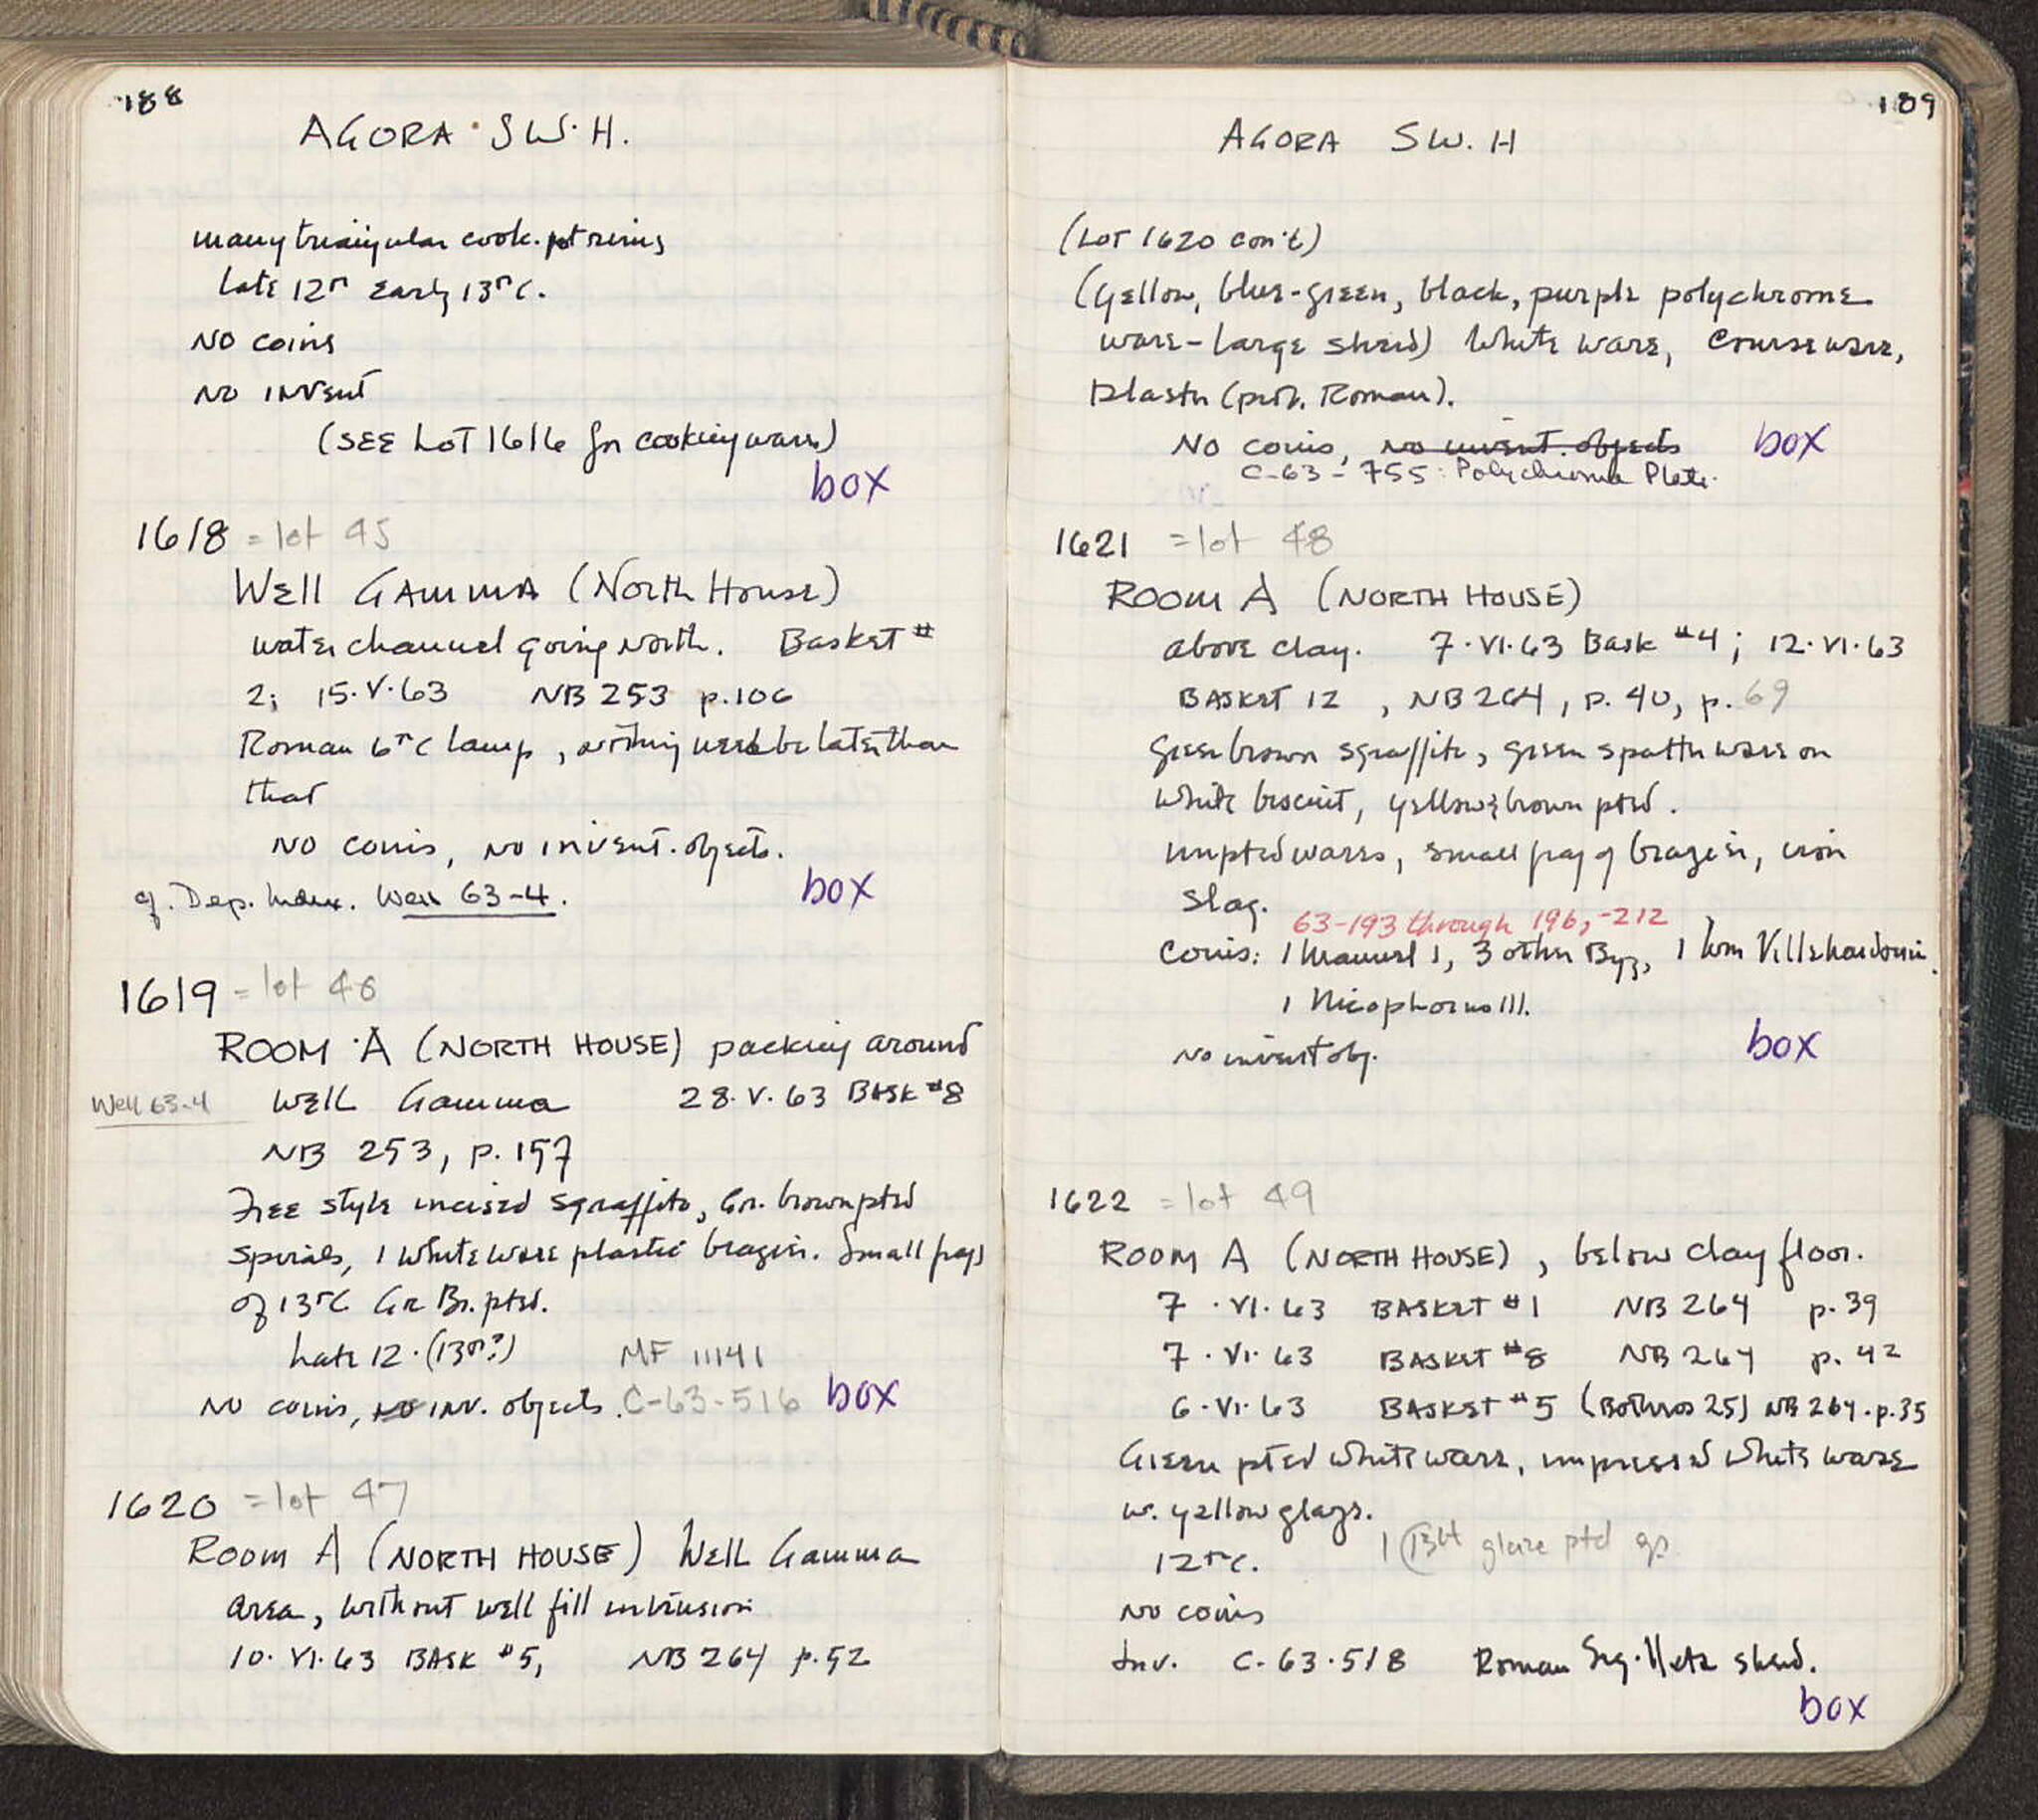 188
AGORA SW. H.
many triangular cook. pot rims
late 12th early 13th C.
NO coins
NO INVent
(SEE LOT 1616 for cooking wares)
box
1618 = lot 45
WEll GAMMA (North House)
water channel going north. Basket #
2; 15.V.63 NB 253 p.106
Roman 6th C lamp, nothing need be later than
that
NO coins, NO invent. objects.
cf. Dep. Index. Well 63-4.
box
1619 = lot 46
ROOM A (NORTH HOUSE) packing around
Well 63-4 WEll Gamma 28.V.63 BASK #8
NB 253, p.157
Free style incised sgraffito, Gr. brown ptd
spirals, 1 white ware plastic brazier. Small frags
of 13th C Gr Br. ptd.
Late 12. (13th?) MF 11141
NO coins, NO INV. objects. C-63-516 box
1620 = lot 47
Room A (NORTH HOUSE) Well Gamma
area, without well fill intrusion
10.VI.63 BASK #5, NB 264 p.52
189
AGORA SW. H
(LOT 1620 con't)
(yellow, blue-green, black, purple polychrome
ware - large sherd) White ware, Course ware,
Plaster (prob. Roman).
NO coins, no invent. objects box
C-63-755: Polychrome Plate.
1621 = lot 48
ROOM A (NORTH HOUSE)
above clay. 7.VI.63 Bask #4; 12.VI.63
BASKET 12, NB 264, p. 40, p. 69
Green brown sgraffito, green spatter ware on
white biscuit, yellow & brown ptd.
unptd wares, small frag of brazier, iron
slag.
63-193 through 196, -212
Coins: 1 Manuel 1, 3 other Byz, 1 Wm Villehardouin.
1 Nicephorus III.
No invent obj.
box
1622 = lot 49
ROOM A (NORTH HOUSE), below clay floor.
7.VI.63 BASKET #1 NB 264 p.39
7.VI.63 BASKET #8 NB 264 p.42
6.VI.63 BASKET #5 (Bothros 25) NB 264.p.35
Green ptd white ware, impressed white ware
w. yellow glaze.
1 13th glaze ptd
12th C.
NO coins
Inv. C-63-518 Roman Sig. sherd.
box